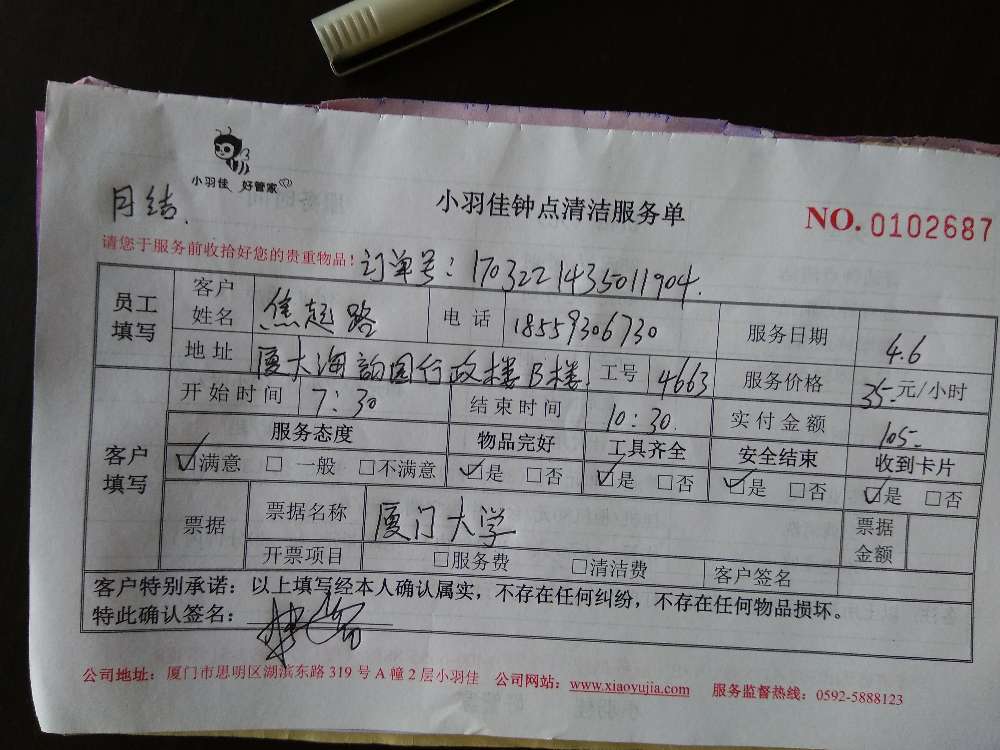 小羽佳 好管家
月结.
小羽佳钟点清洁服务单
NO. 0102687
请您于服务前收拾好您的贵重物品！
订单号：1703221435011904.
员工填写 客户姓名 焦起路 电话 18559306730 服务日期 4.6
地址 厦大海韵园行政楼B楼 工号 4663 服务价格 35-元/小时
客户填写 开始时间 7:30 结束时间 10:30. 实付金额 105-
服务态度 物品完好 工具齐全 安全结束 收到卡片
☑满意 □ 一般 □不满意 ☑是 □否 ☑是 □否 ☑是 □否 ☑是 □否
票据 票据名称 厦门大学 票据金额
开票项目 □服务费 □清洁费 客户签名
客户特别承诺：以上填写经本人确认属实，不存在任何纠纷，不存在任何物品损坏。
特此确认签名：
公司地址：厦门市思明区湖滨东路 319 号 A 幢 2 层小羽佳 公司网站：www.xiaoyujia.com 服务监督热线：0592-5888123